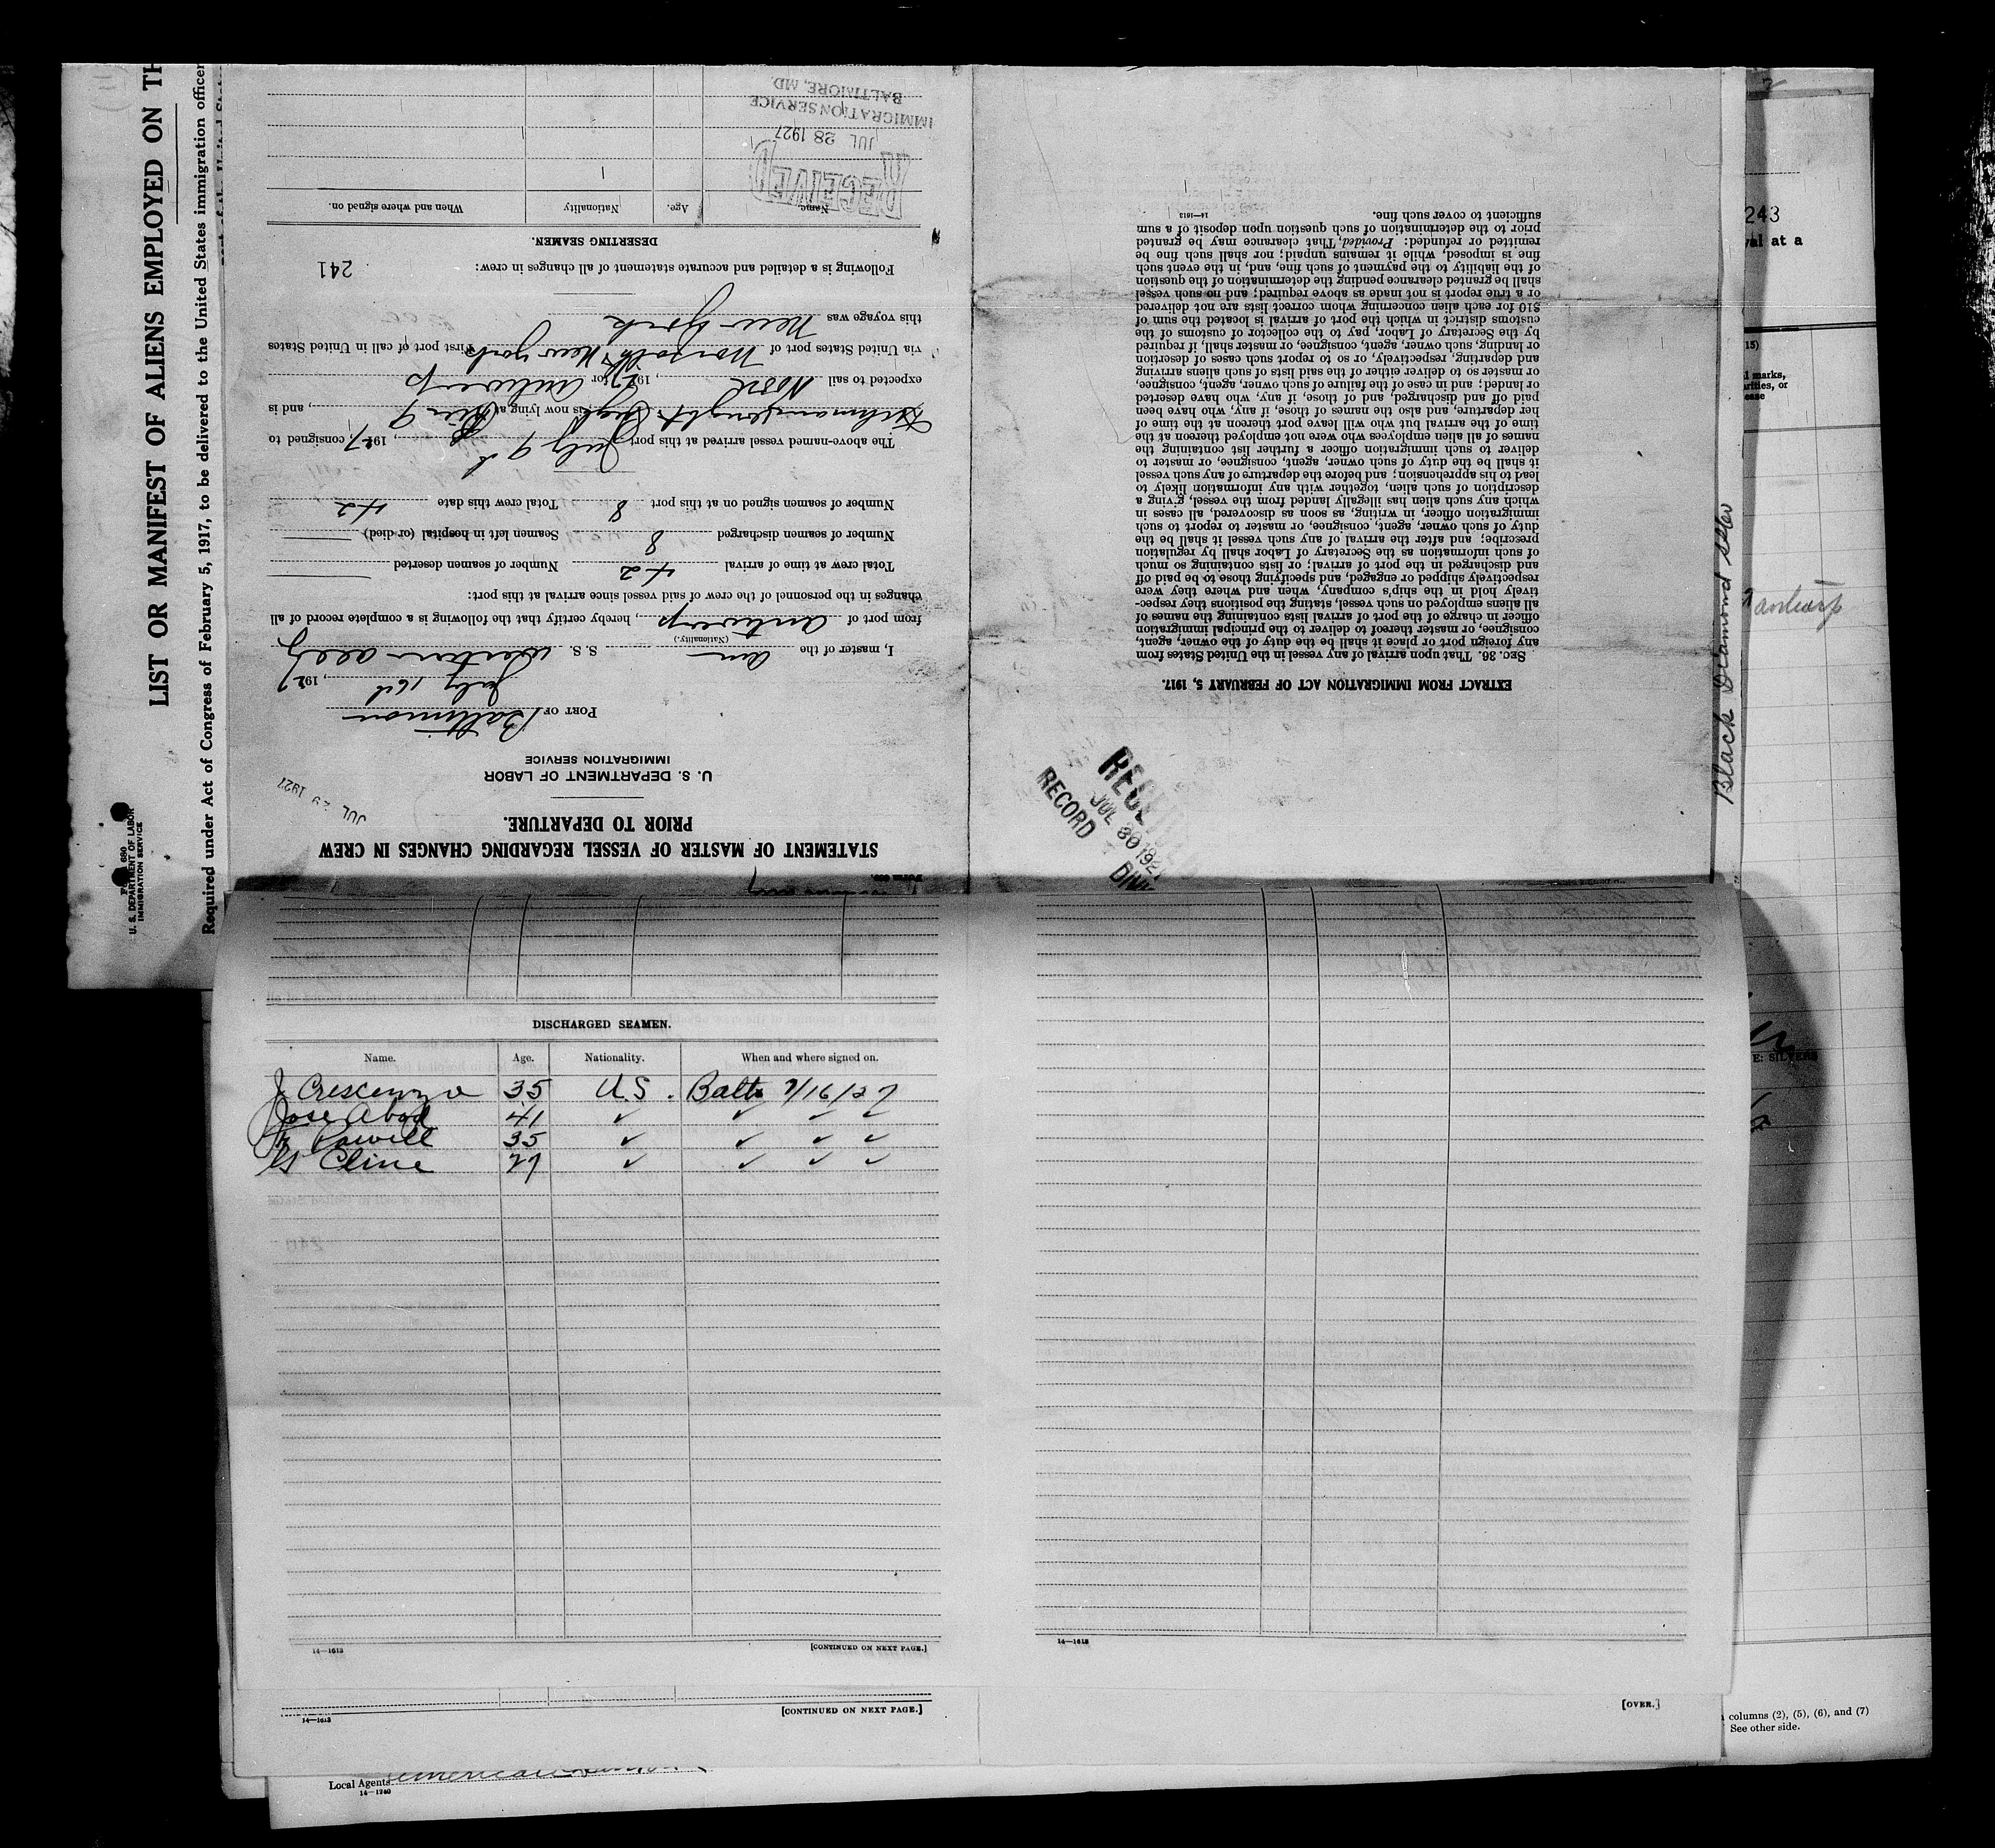 LIST OR MANIFEST OF ALIENS EMPLOYED ON TH
Required under Act of Congress of February 5, 1917, to be delivered to the United States immigration officer
U. S. DEPARTMENT OF LABOR
IMMIGRATION SERVICE
STATEMENT OF MASTER OF VESSEL REGARDING CHANGES IN CREW
PRIOR TO DEPARTURE.
JUL 29 1927
U. S. DEPARTMENT OF LABOR
IMMIGRATION SERVICE
PORT OF Baltimore
July 16, 1927
I, master of the Am S. S.
(Nationality.)
from port of Antwerp, hereby certify that the following is a complete record of all
changes in the personnel of the crew of said vessel since arrival at this port:
Total crew at time of arrival 42 Number of seamen deserted
Number of seamen discharged 8 Seamen left in hospital (or died)
Number of seamen signed on at this port 8 Total crew this date 42
The above-named vessel arrived at this port July 9, 1927, consigned to
is now lying at Pier 9, and is
expected to sail Noon, 192 for Antwerp
via United States port of Norfolk New York First port of call in United States
this voyage was New York
Following is a detailed and accurate statement of all changes in crew:
241
DESERTING SEAMEN.
Name. Age. Nationality When and where signed on.
RECEIVED
JUL 28 1927
IMMIGRATION SERVICE
BALTIMORE, MD.
EXTRACT FROM IMMIGRATION ACT OF FEBRUARY 5, 1917.
SEC. 36. That upon arrival of any vessel in the United States from
any foreign port or place it shall be the duty of the owner, agent,
consignee, or master thereof to deliver to the principal immigration
officer in charge of the port of arrival lists containing the names of
all aliens employed on such vessel, stating the positions they respec-
tively hold in the ship's company, when and where they were
respectively shipped or engaged, and specifying those to be paid off
and discharged in the port of arrival; or lists containing so much
of such information as the Secretary of Labor shall by regulation
prescribe; and after the arrival of any such vessel it shall be the
duty of such owner, agent, consignee, or master to report to such
immigration officer, in writing, as soon as discovered, all cases in
which any such alien has illegally landed from the vessel, giving a
description of such alien, together with any information likely to
lead to his apprehension; and before the departure of any such vessel
it shall be the duty of such owner, agent, consignee, or master to
deliver to such immigration officer a further list containing the
names of all alien employees who were not employed thereon at the
time of the arrival but who will leave port thereon at the time of
her departure, and also the names of those, if any, who have been
paid off and discharged, and of those, if any, who have deserted
or landed; and in case of the failure of such owner, agent, consignee,
or master so to deliver either of the said lists of such aliens arriving
and departing, respectively, or so to report such cases of desertion
or landing, such owner, agent, consignee, or master shall, if required
by the Secretary of Labor, pay to the collector of customs of the
customs district in which the port of arrival is located the sum of
$10 for each alien concerning whom correct lists are not delivered
or a true report is not made as above required; and no such vessel
shall be granted clearance pending the determination of the question
of the liability to the payment of such fine, and, in the event such
fine is imposed, while it remains unpaid; nor shall such fine be
remitted or refunded: Provided, That clearance may be granted
prior to the determination of such question upon deposit of a sum
sufficient to cover such fine.
14—1613
JUL 30 1927
RECORD
Black Diamond
243
val at a
15)
l marks,
arities, or
ease
E: SILVERS
DISCHARGED SEAMEN.
Name. Age. Nationality. When and where signed on.
J Crescenzo 35 U.S. Balto 7/16/27
Jose Abad 41 ✓ ✓ ✓ ✓
Powell 35 ✓ ✓ ✓ ✓
Cline 27 ✓ ✓ ✓ ✓
14—1613 [CONTINUED ON NEXT PAGE.]
14—1613
14—1613 [CONTINUED ON NEXT PAGE.]
[OVER.]
columns (2), (5), (6), and (7)
See other side.
Local Agents
14—1240